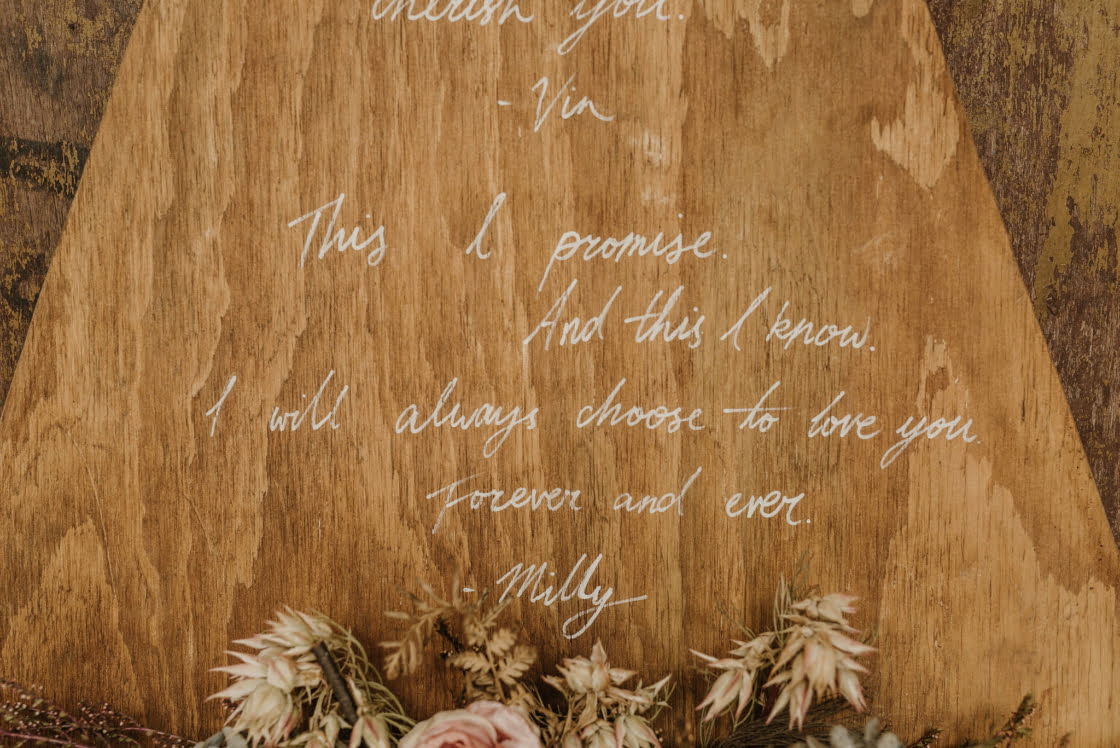 cherish you.
- Vin
This I promise.
And this I know.
I will always choose to love you.
Forever and ever.
- Milly